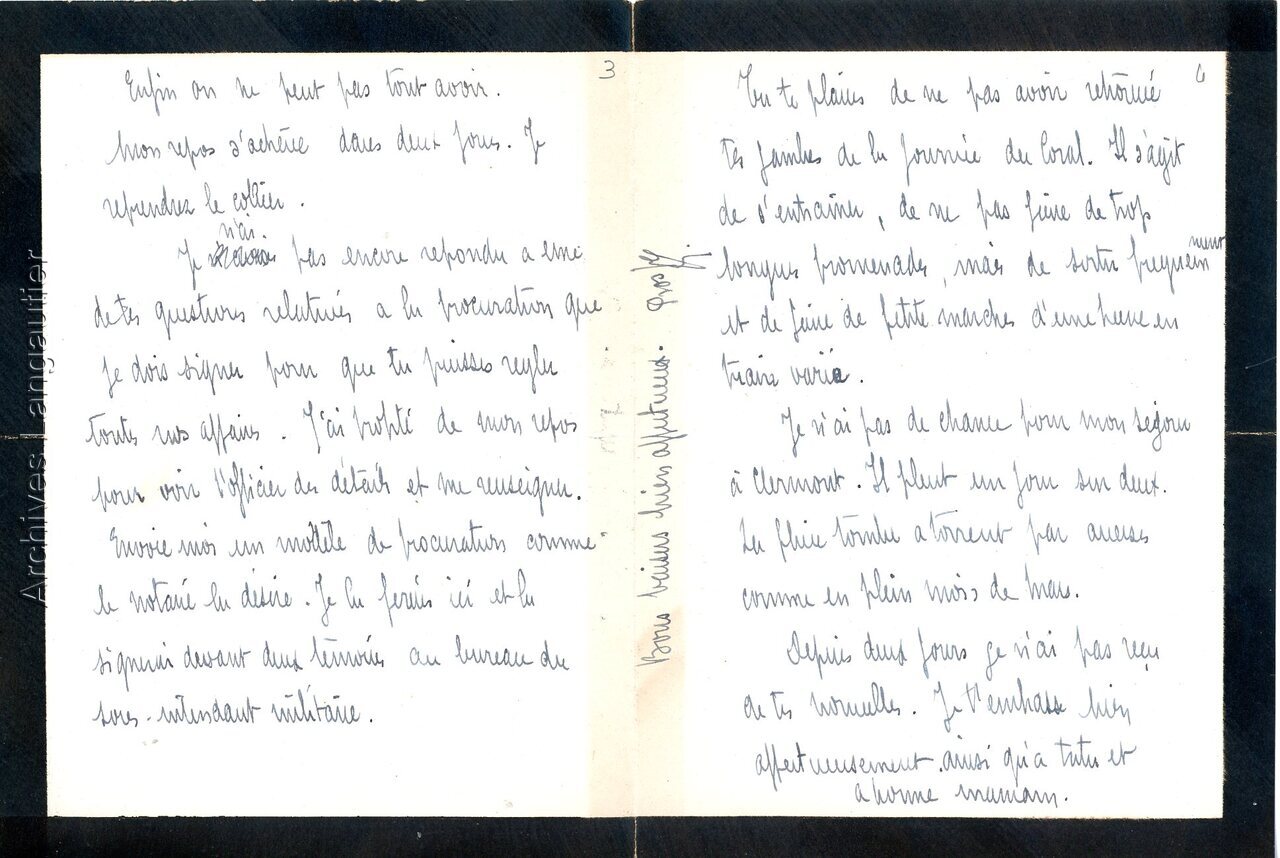 3
Enfin on ne peut pas tout avoir.
Mon repos s'achève dans deux jours. Je
reprendrez le collier.
n'ai
Je pas encore repondu a une
de tes questions relatives a la procuration que
je dois signer pour que tu puisses regler
toutes nos affaires. J'ai profité de mon repos
pour voir l'officier des détails et me renseigner.
Envoie moi un modèle de procuration comme
le notaire la désire. Je la ferais ici et la
signerai devant deux témoins au bureau du
sous-intendant militaire.
Bons baisers bien affectueux.
4
Tu te plains de ne pas avoir retrouvé
tes jambes de la journée du Coral. Il s'agit
de s'entrainer, de ne pas faire de trop
longues promenades, mais de sortir frequem
ment
et de faire de petite marches d'une heure en
terrain varié.
Je n'ai pas de chance pour mon sejour
à Clermont. Il pleut un jour sur deux.
La pluie tombe a torrent par averses
comme en plein mois de mars.
Depuis deux jours je n'ai pas reçu
de tes nouvelles. Je t'embrasse bien
affectueusement ainsi qu'a tutu et
a bonne maman.
Archives Langautier